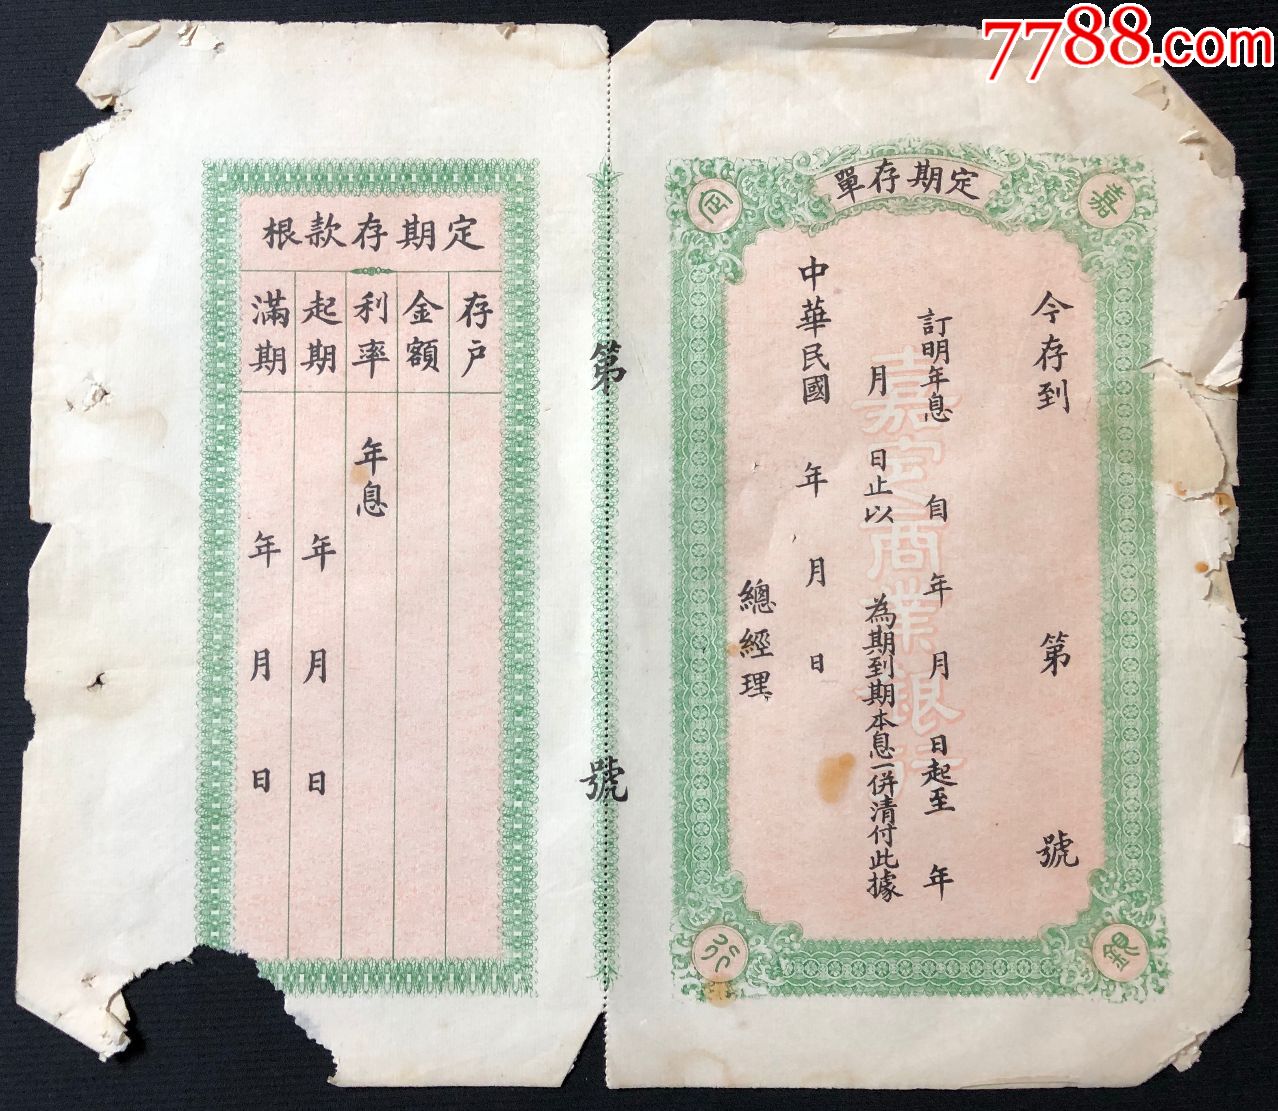 7788.com
定期存單
嘉
定
銀
行
嘉定商業銀行
今存到 第 號
訂明年息 自 年 月 日起至 年
月 日止以 為期到期本息一併清付此據
中華民國 年 月 日
總經理
第 號
定期存款根
存戶
金額
利率 年息
起期 年 月 日
滿期 年 月 日